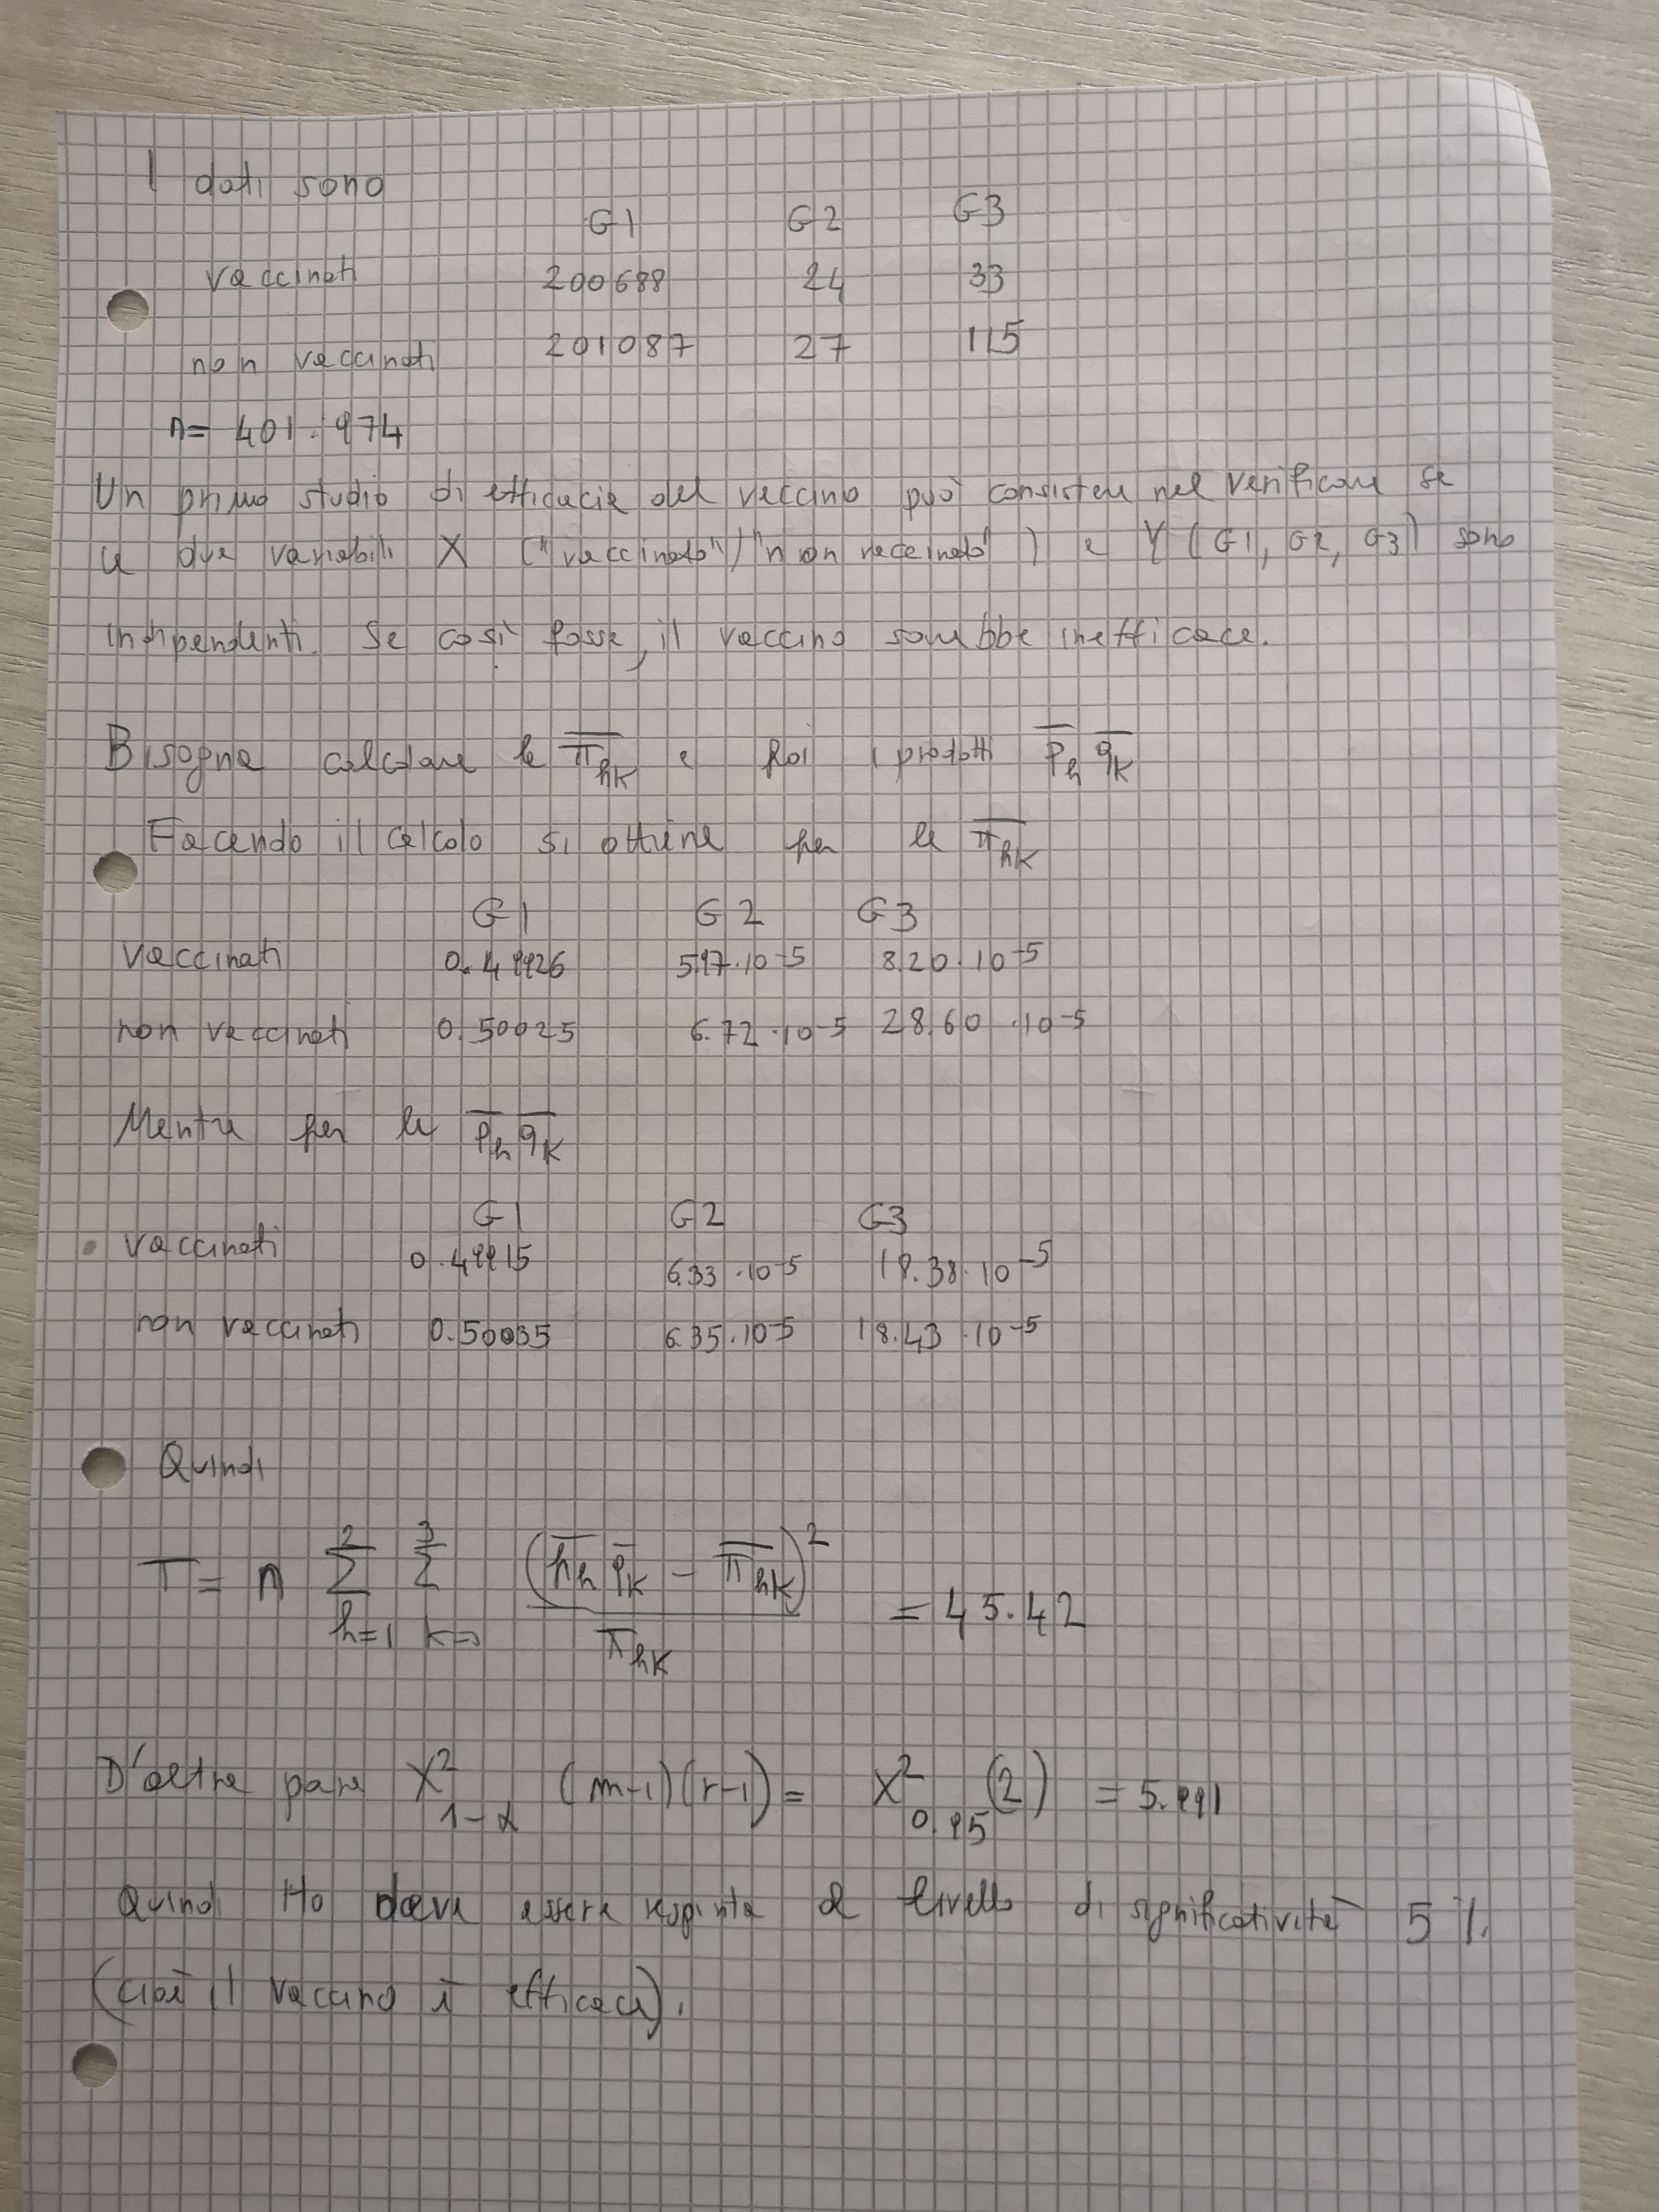 I dati sono
G1 G2 G3
vaccinati 200688 24 33
non vaccinati 201087 27 115
n= 401.974
Un primo studio di efficacia del vaccino può consistere nel verificare se
le due variabili X ("vaccinato"/"non vaccinato") e Y (G1, G2, G3) sono
indipendenti. Se così fosse, il vaccino sarebbe inefficace.
Bisogna calcolare le π̅hk e poi i prodotti p̅h q̅k
Facendo il calcolo si ottiene per le π̅hk
G1 G2 G3
vaccinati 0.49926 5.97·10⁻⁵ 8.20·10⁻⁵
non vaccinati 0.50025 6.72·10⁻⁵ 28.60·10⁻⁵
Mentre per le p̅h q̅k
G1 G2 G3
vaccinati 0.49915 6.33·10⁻⁵ 18.38·10⁻⁵
non vaccinati 0.50035 6.35·10⁻⁵ 18.43·10⁻⁵
Quindi
T = n ∑_{h=1}^{2} ∑_{k=1}^{3} (p̅h q̅k − π̅hk)² / π̅hk = 45.42
D'altra parte X²_{1-α} (m-1)(r-1) = X²_{0.95}(2) = 5.991
Quindi H0 deve essere respinta al livello di significatività 5%
(cioè il vaccino è efficace).